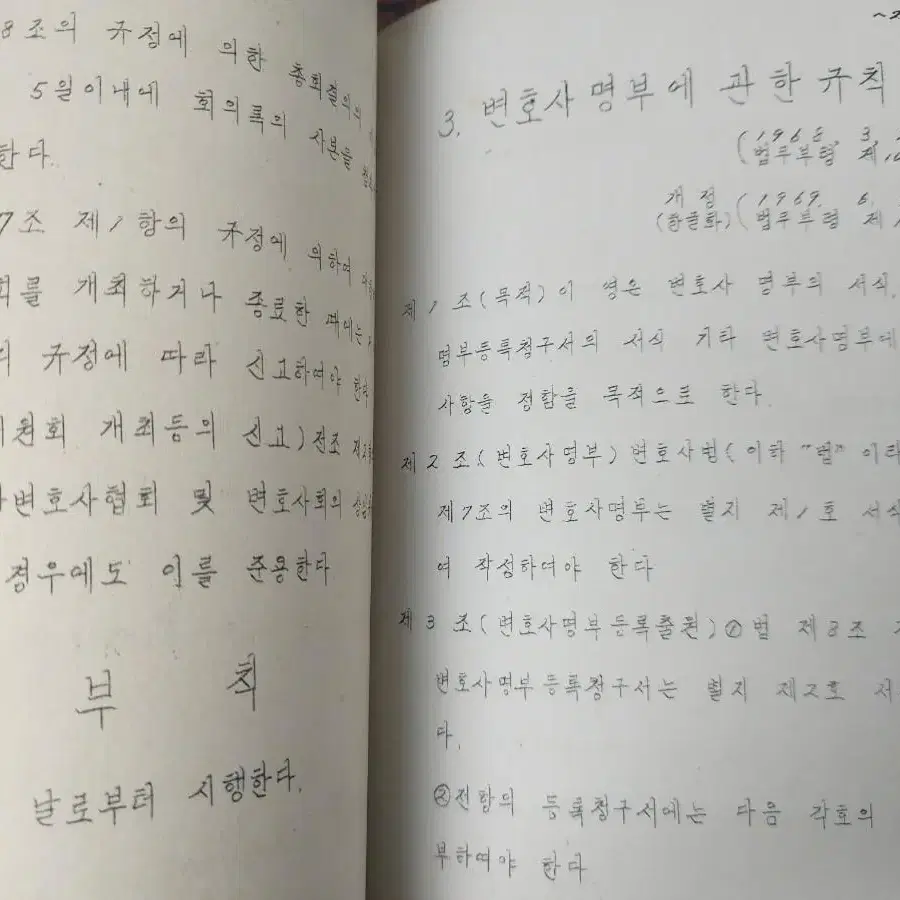 8조의 규정에 의한 총회결의의
5일이내에 회의록의 사본을
한다.
7조 제1항의 규정에 의하여
회를 개최하거나 종료한 때에는,
의 규정에 따라 신고하여야 한다
위원회 개최등의 신고) 전조
변호사협회 및 변호사회의
경우에도 이를 준용한다
부 칙
날로부터 시행한다.
~2
3. 변호사명부에 관한 규칙
(1968. 3.
(법무부령 제
개정 (1969. 6.
(한글화) (법무부령 제
제1조(목적) 이 영은 변호사 명부의 서식,
명부등록청구서의 서식 기타 변호사명부에
사항을 정함을 목적으로 한다.
제2조(변호사명부) 변호사법(이하 "법"이라
제7조의 변호사명부는 별지 제1호 서식
여 작성하여야 한다
제3조(변호사명부등록출원)①법 제8조
변호사명부등록청구서는 별지 제2호 서
다.
②전항의 등록청구서에는 다음 각호의
부하여야 한다